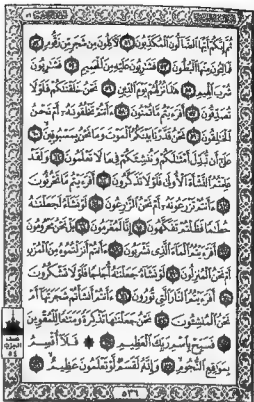 ثُمَّ إِنَّكُمْ أَيُّهَا الضَّالُّونَ الْمُكَذِّبُونَ ٥١ لَآكِلُونَ مِن شَجَرٍ مِّن زَقُّومٍ ٥٢
فَمَالِئُونَ مِنْهَا الْبُطُونَ ٥٣ فَشَارِبُونَ عَلَيْهِ مِنَ الْحَمِيمِ ٥٤ فَشَارِبُونَ
شُرْبَ الْهِيمِ ٥٥ هَٰذَا نُزُلُهُمْ يَوْمَ الدِّينِ ٥٦ نَحْنُ خَلَقْنَاكُمْ فَلَوْلَا
تُصَدِّقُونَ ٥٧ أَفَرَأَيْتُم مَّا تُمْنُونَ ٥٨ ءَأَنتُمْ تَخْلُقُونَهُ أَمْ نَحْنُ
الْخَالِقُونَ ٥٩ نَحْنُ قَدَّرْنَا بَيْنَكُمُ الْمَوْتَ وَمَا نَحْنُ بِمَسْبُوقِينَ ٦٠
عَلَىٰ أَن نُّبَدِّلَ أَمْثَالَكُمْ وَنُنشِئَكُمْ فِي مَا لَا تَعْلَمُونَ ٦١ وَلَقَدْ
عَلِمْتُمُ النَّشْأَةَ الْأُولَىٰ فَلَوْلَا تَذَكَّرُونَ ٦٢ أَفَرَأَيْتُم مَّا تَحْرُثُونَ
٦٣ ءَأَنتُمْ تَزْرَعُونَهُ أَمْ نَحْنُ الزَّارِعُونَ ٦٤ لَوْ نَشَاءُ لَجَعَلْنَاهُ
حُطَامًا فَظَلْتُمْ تَفَكَّهُونَ ٦٥ إِنَّا لَمُغْرَمُونَ ٦٦ بَلْ نَحْنُ مَحْرُومُونَ
٦٧ أَفَرَأَيْتُمُ الْمَاءَ الَّذِي تَشْرَبُونَ ٦٨ ءَأَنتُمْ أَنزَلْتُمُوهُ مِنَ الْمُزْنِ
أَمْ نَحْنُ الْمُنزِلُونَ ٦٩ لَوْ نَشَاءُ جَعَلْنَاهُ أُجَاجًا فَلَوْلَا تَشْكُرُونَ
٧٠ أَفَرَأَيْتُمُ النَّارَ الَّتِي تُورُونَ ٧١ ءَأَنتُمْ أَنشَأْتُمْ شَجَرَتَهَا أَمْ
نَحْنُ الْمُنشِئُونَ ٧٢ نَحْنُ جَعَلْنَاهَا تَذْكِرَةً وَمَتَاعًا لِّلْمُقْوِينَ
٧٣ فَسَبِّحْ بِاسْمِ رَبِّكَ الْعَظِيمِ ٧٤ ۞ فَلَا أُقْسِمُ
بِمَوَاقِعِ النُّجُومِ ٧٥ وَإِنَّهُ لَقَسَمٌ لَّوْ تَعْلَمُونَ عَظِيمٌ ٧٦
نصف
الحزب
٥٤
٥٣٦